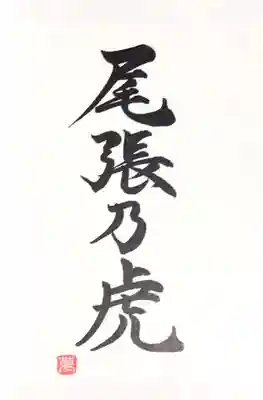 尾張乃虎